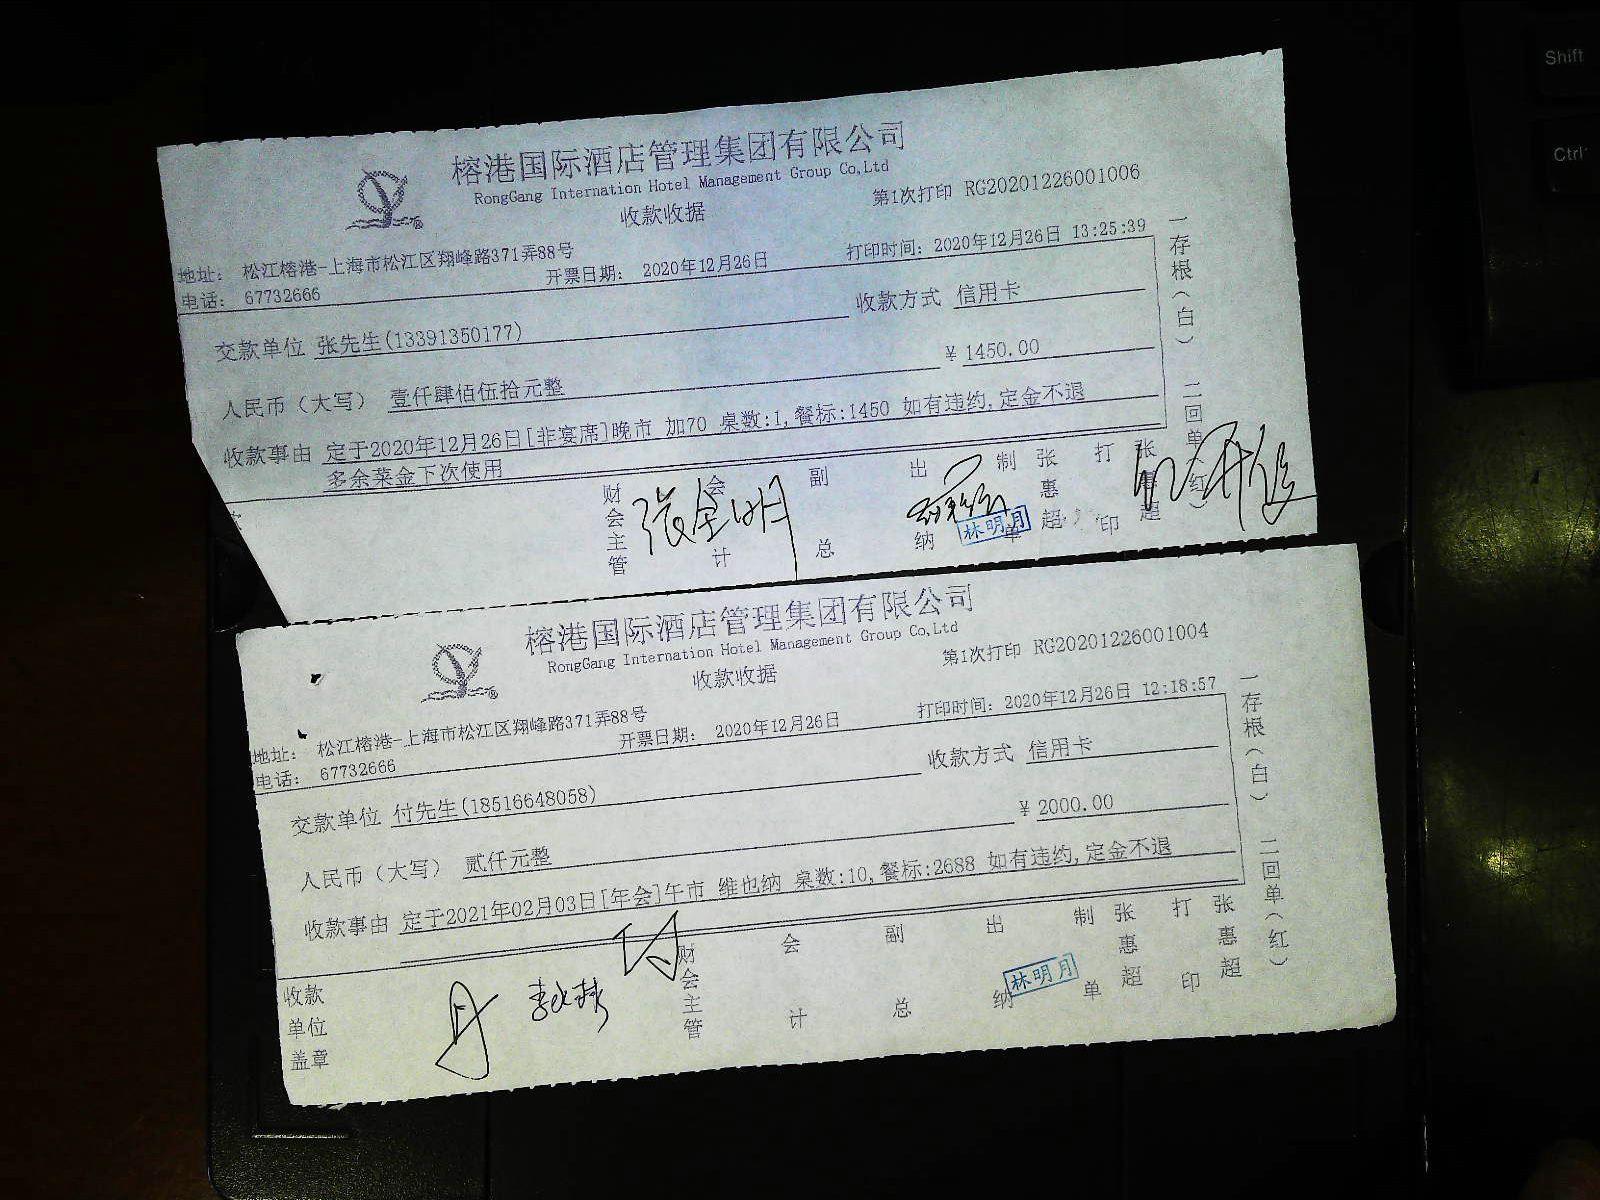 榕港国际酒店管理集团有限公司
RongGang Internation Hotel Management Group Co,Ltd
收款收据
第1次打印 RG20201226001006
地址： 松江榕港-上海市松江区翔峰路371弄88号
电话： 67732666
开票日期： 2020年12月26日
打印时间：2020年12月26日 13:25:39
交款单位 张先生(13391350177)
收款方式 信用卡
人民币（大写） 壹仟肆佰伍拾元整
¥ 1450.00
收款事由 定于2020年12月26日[非宴席]晚市 加70 桌数:1,餐标:1450 如有违约,定金不退
多余菜金下次使用
财会主管 张金明
会计
副总
出纳 林明月
制单 张惠超
打印 张惠超
一存根（白） 二回单（红）
榕港国际酒店管理集团有限公司
RongGang Internation Hotel Management Group Co,Ltd
收款收据
第1次打印 RG20201226001004
地址： 松江榕港-上海市松江区翔峰路371弄88号
电话： 67732666
开票日期： 2020年12月26日
打印时间：2020年12月26日 12:18:57
交款单位 付先生(18516648058)
收款方式 信用卡
人民币（大写） 贰仟元整
¥ 2000.00
收款事由 定于2021年02月03日[年会]午市 维也纳 桌数:10,餐标:2688 如有违约,定金不退
收款
单位
盖章
财会主管
会计
副总
出纳 林明月
制单 张惠超
打印 张惠超
一存根（白） 二回单（红）
Shift
Ctrl